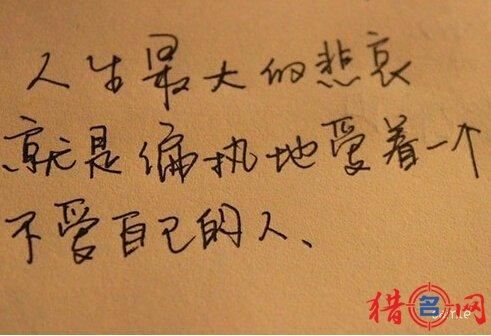 人生最大的悲哀
就是偏执地爱着一个
不爱自己的人、
猎名网